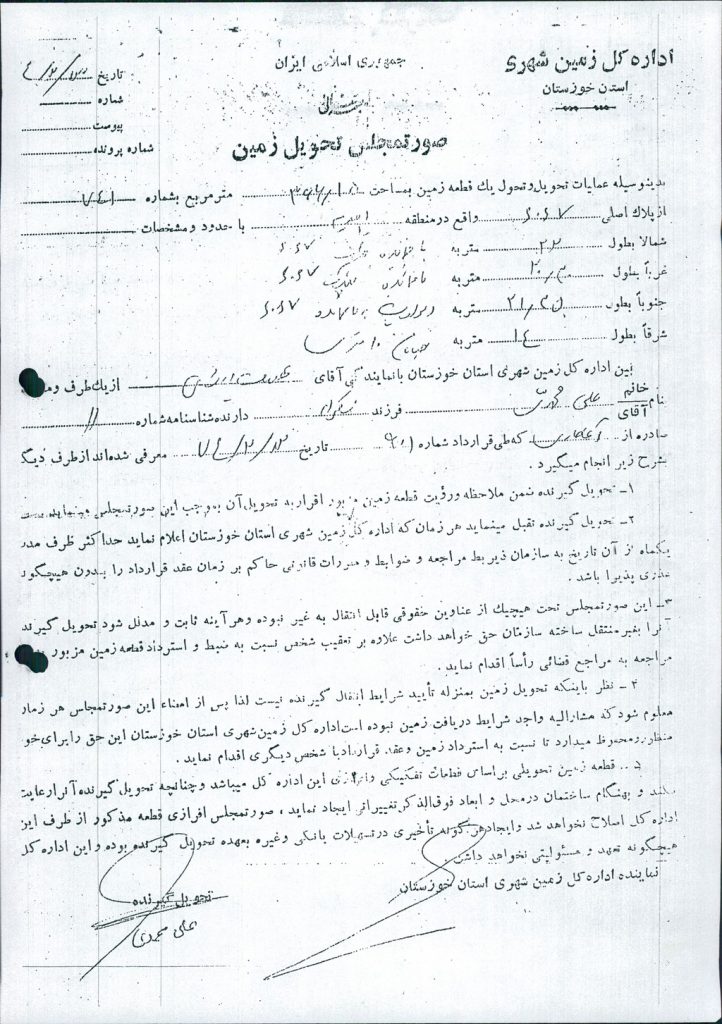 جمهوری اسلامی ایران
اداره کل زمین شهری
استان خوزستان
تاریخ
شماره
پیوست
شماره پرونده
صورتمجلس تحویل زمین
بدینوسیله عملیات تحویل و تحول یک قطعه زمین بمساحت مترمربع بشماره ۷۴۱
از پلاک اصلی ۶۰۶۷ واقع در منطقه با حدود و مشخصات
شمالا بطول ۲۲ متر به باقیمانده ۶۰۶۷
غرباً بطول متر به باقیمانده ۶۰۶۷
جنوباً بطول متر به باقیمانده ۶۰۶۷
شرقاً بطول ۱۴ متر به خیابان ۱۰ متری
بین اداره کل زمین شهری استان خوزستان با نمایندگی آقای از یک طرف و
خانم
آقای
نام علی محمدی فرزند دارنده شناسنامه شماره ۱۱
صادره از آغاجاری که طی قرارداد شماره تاریخ معرفی شده اند از طرف دیگ
بشرح زیر انجام میگیرد .
۱ـ تحویل گیرنده ضمن ملاحظه و رؤیت قطعه زمین مزبور اقرار به تحویل آن بموجب این صورتمجلس مینماید
۲ـ تحویل گیرنده تقبل مینماید هر زمان که اداره کل زمین شهری استان خوزستان اعلام نماید حداکثر ظرف مدت
یکماه از آن تاریخ به سازمان ذیربط مراجعه و ضوابط و مقررات قانونی حاکم بر زمان عقد قرارداد را بدون هیچگونه
عذری پذیرا باشد .
۳ـ این صورتمجلس تحت هیچیک از عناوین حقوقی قابل انتقال به غیر نبوده و هر آینه ثابت و مدلل شود تحویل گیرند
آنرا بغیر منتقل ساخته سازمان حق خواهد داشت علاوه بر تعقیب شخص نسبت به ضبط و استرداد قطعه زمین مزبور
مراجعه به مراجع قضائی رأساً اقدام نماید .
۴ـ نظر باینکه تحویل زمین بمنزله تأیید شرایط انتقال گیرنده نیست لذا پس از امضاء این صورتمجلس هر زمان
معلوم شود که مشارالیه واجد شرایط دریافت زمین نبوده است اداره کل زمین شهری استان خوزستان این حق را برای خو
منظور و محفوظ میدارد تا نسبت به استرداد زمین و عقد قرارداد با شخص دیگری اقدام نماید .
۵ـ قطعه زمین تحویلی براساس قطعات تفکیکی و افرازی این اداره کل میباشد و چنانچه تحویل گیرنده آنرا رعایت
نکند و بهنگام ساختمان در محل و ابعاد فوق الذکر تغییراتی ایجاد نماید ، صورتمجلس افرازی قطعه مذکور از طرف این
اداره کل اصلاح نخواهد شد و ایجاد هر گونه تأخیری در تسهیلات بانکی و غیره بعهده تحویل گیرنده بوده و این اداره کل
هیچگونه تعهد و مسئولیتی نخواهد داشت .
نماینده اداره کل زمین شهری استان خوزستان
تحویل گیرنده
علی محمدی